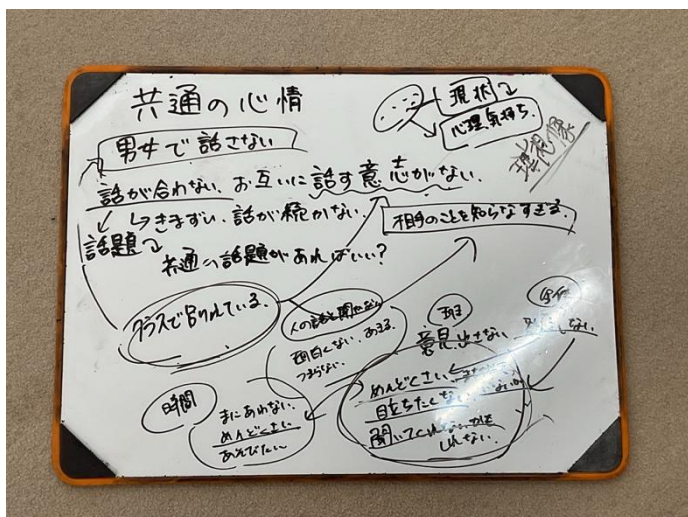 共通の心情
現状
心理気持ち.
理想像
男女で話さない
話が合わない. お互いに話す意志がない.
きまずい. 話が続かない.
相手のことを知らなすぎる.
話題
共通の話題があればいい?
クラスで分かれている.
人の話を聞かない
面白くない. あきる.
つまらない.
班
意見出さない
しない.
時間
まにあわない.
めんどくさい
あそびたい.
めんどくさい
目をちたくない
聞いてくれないかも
しれない.